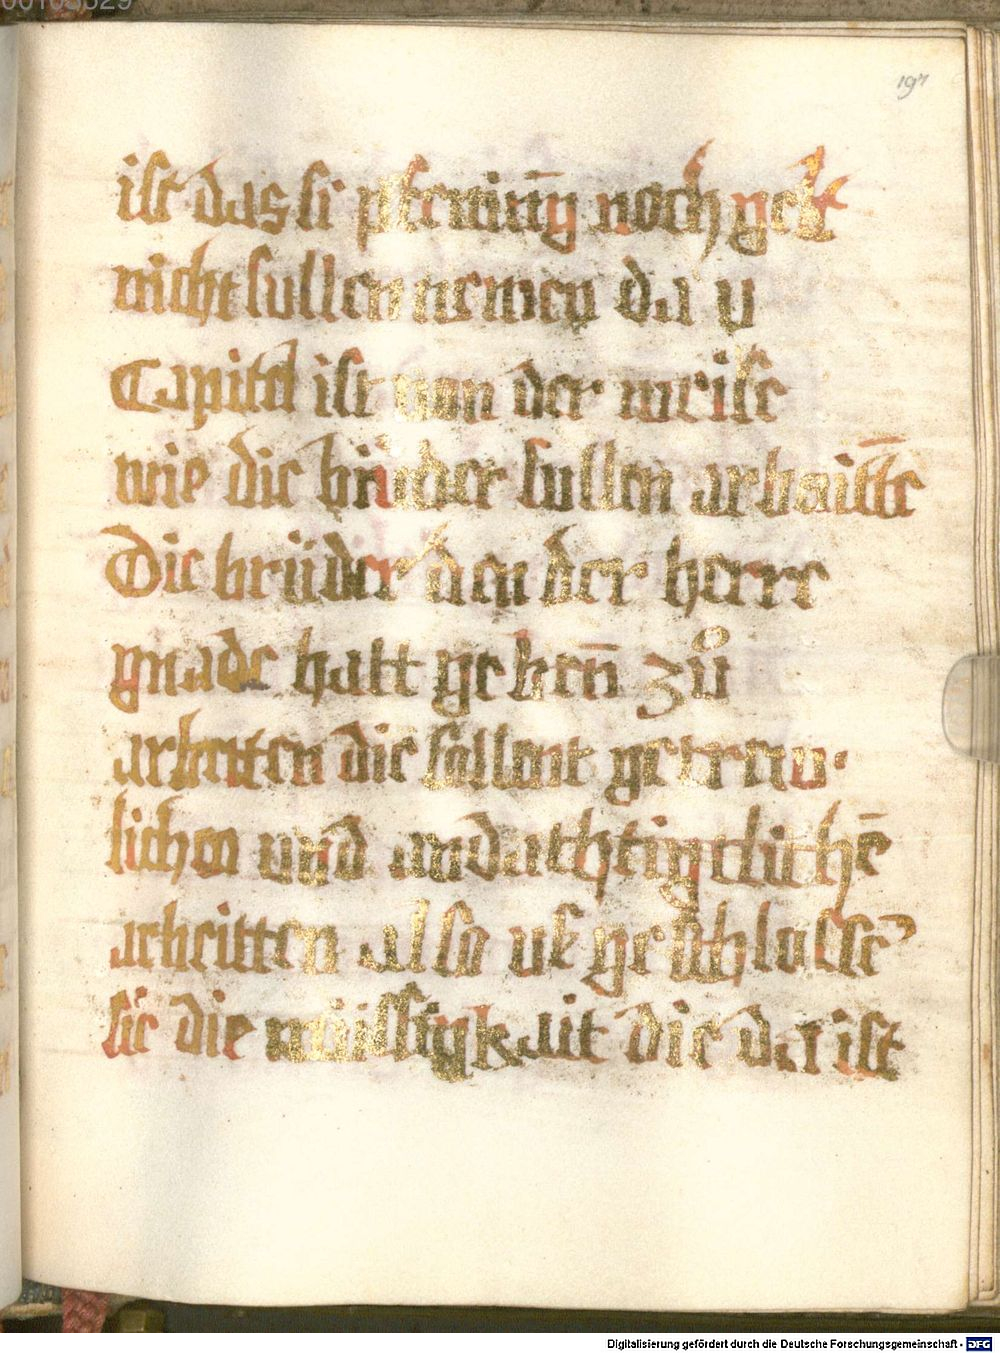 197
ist das si pfenīng noch gelt
nicht sullen nemen da v
Capitel ist von der weise
wie die brüder sullen arbaittē
Die brüder den der herre
gnade hatt gebenn̄ zů
arbeiten die sollent getreu-
lichen und andachtigclichē
arbeitten also uß geschlossē
sie die müssigkait die da ist
Digitalisierung gefördert durch die Deutsche Forschungsgemeinschaft - DFG